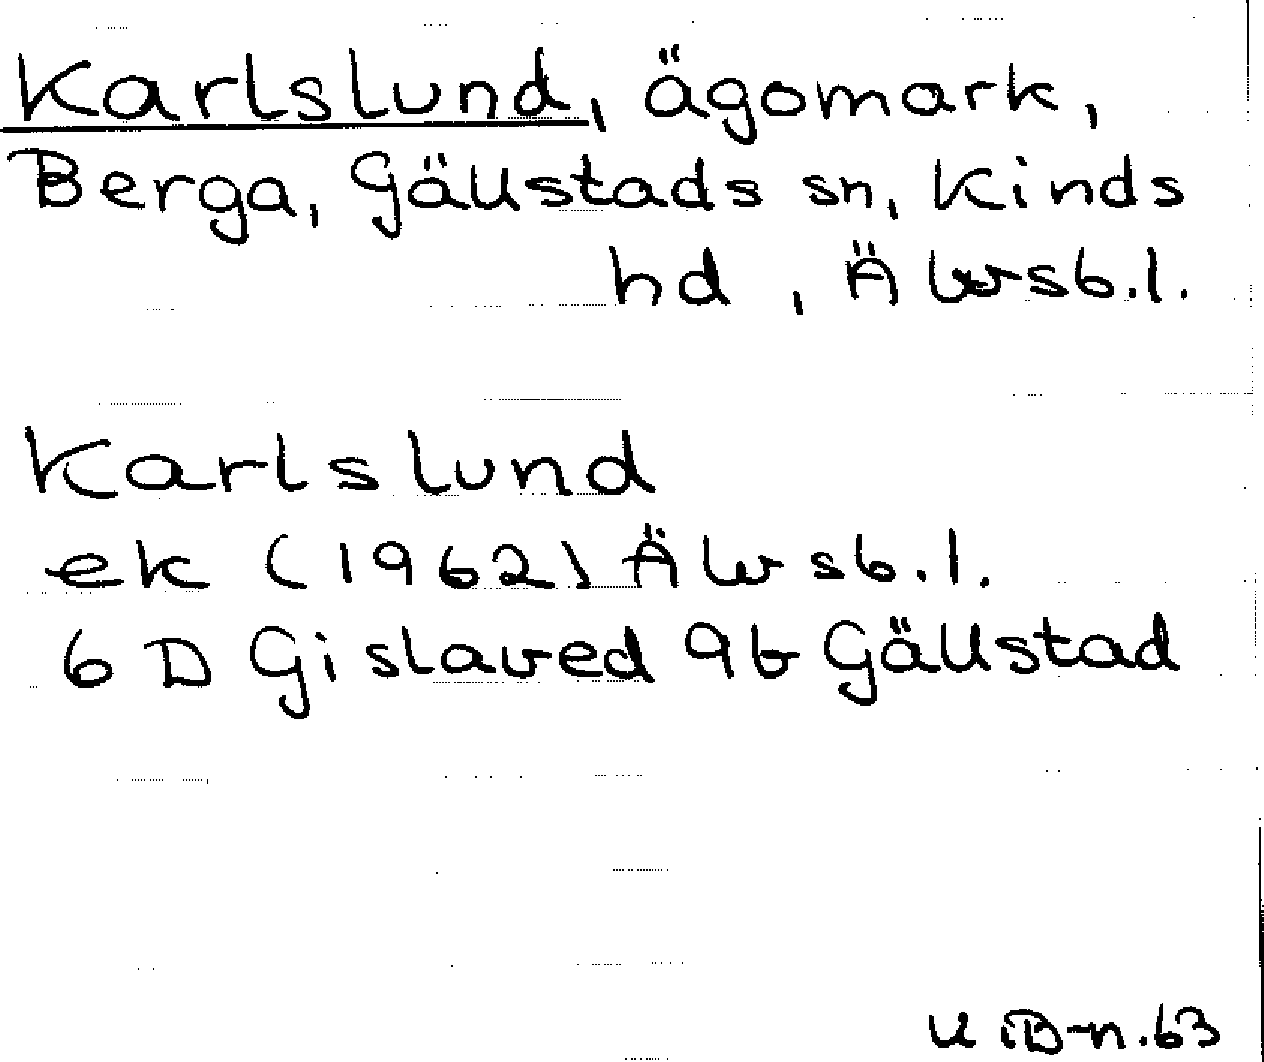 Karlslund, ägomark,
Berga, Gällstads sn, Kinds
hd, Älvsb.l.
Karlslund
ek (1962) Älvsb.l.
6 D Gislaved 9b Gällstad
63